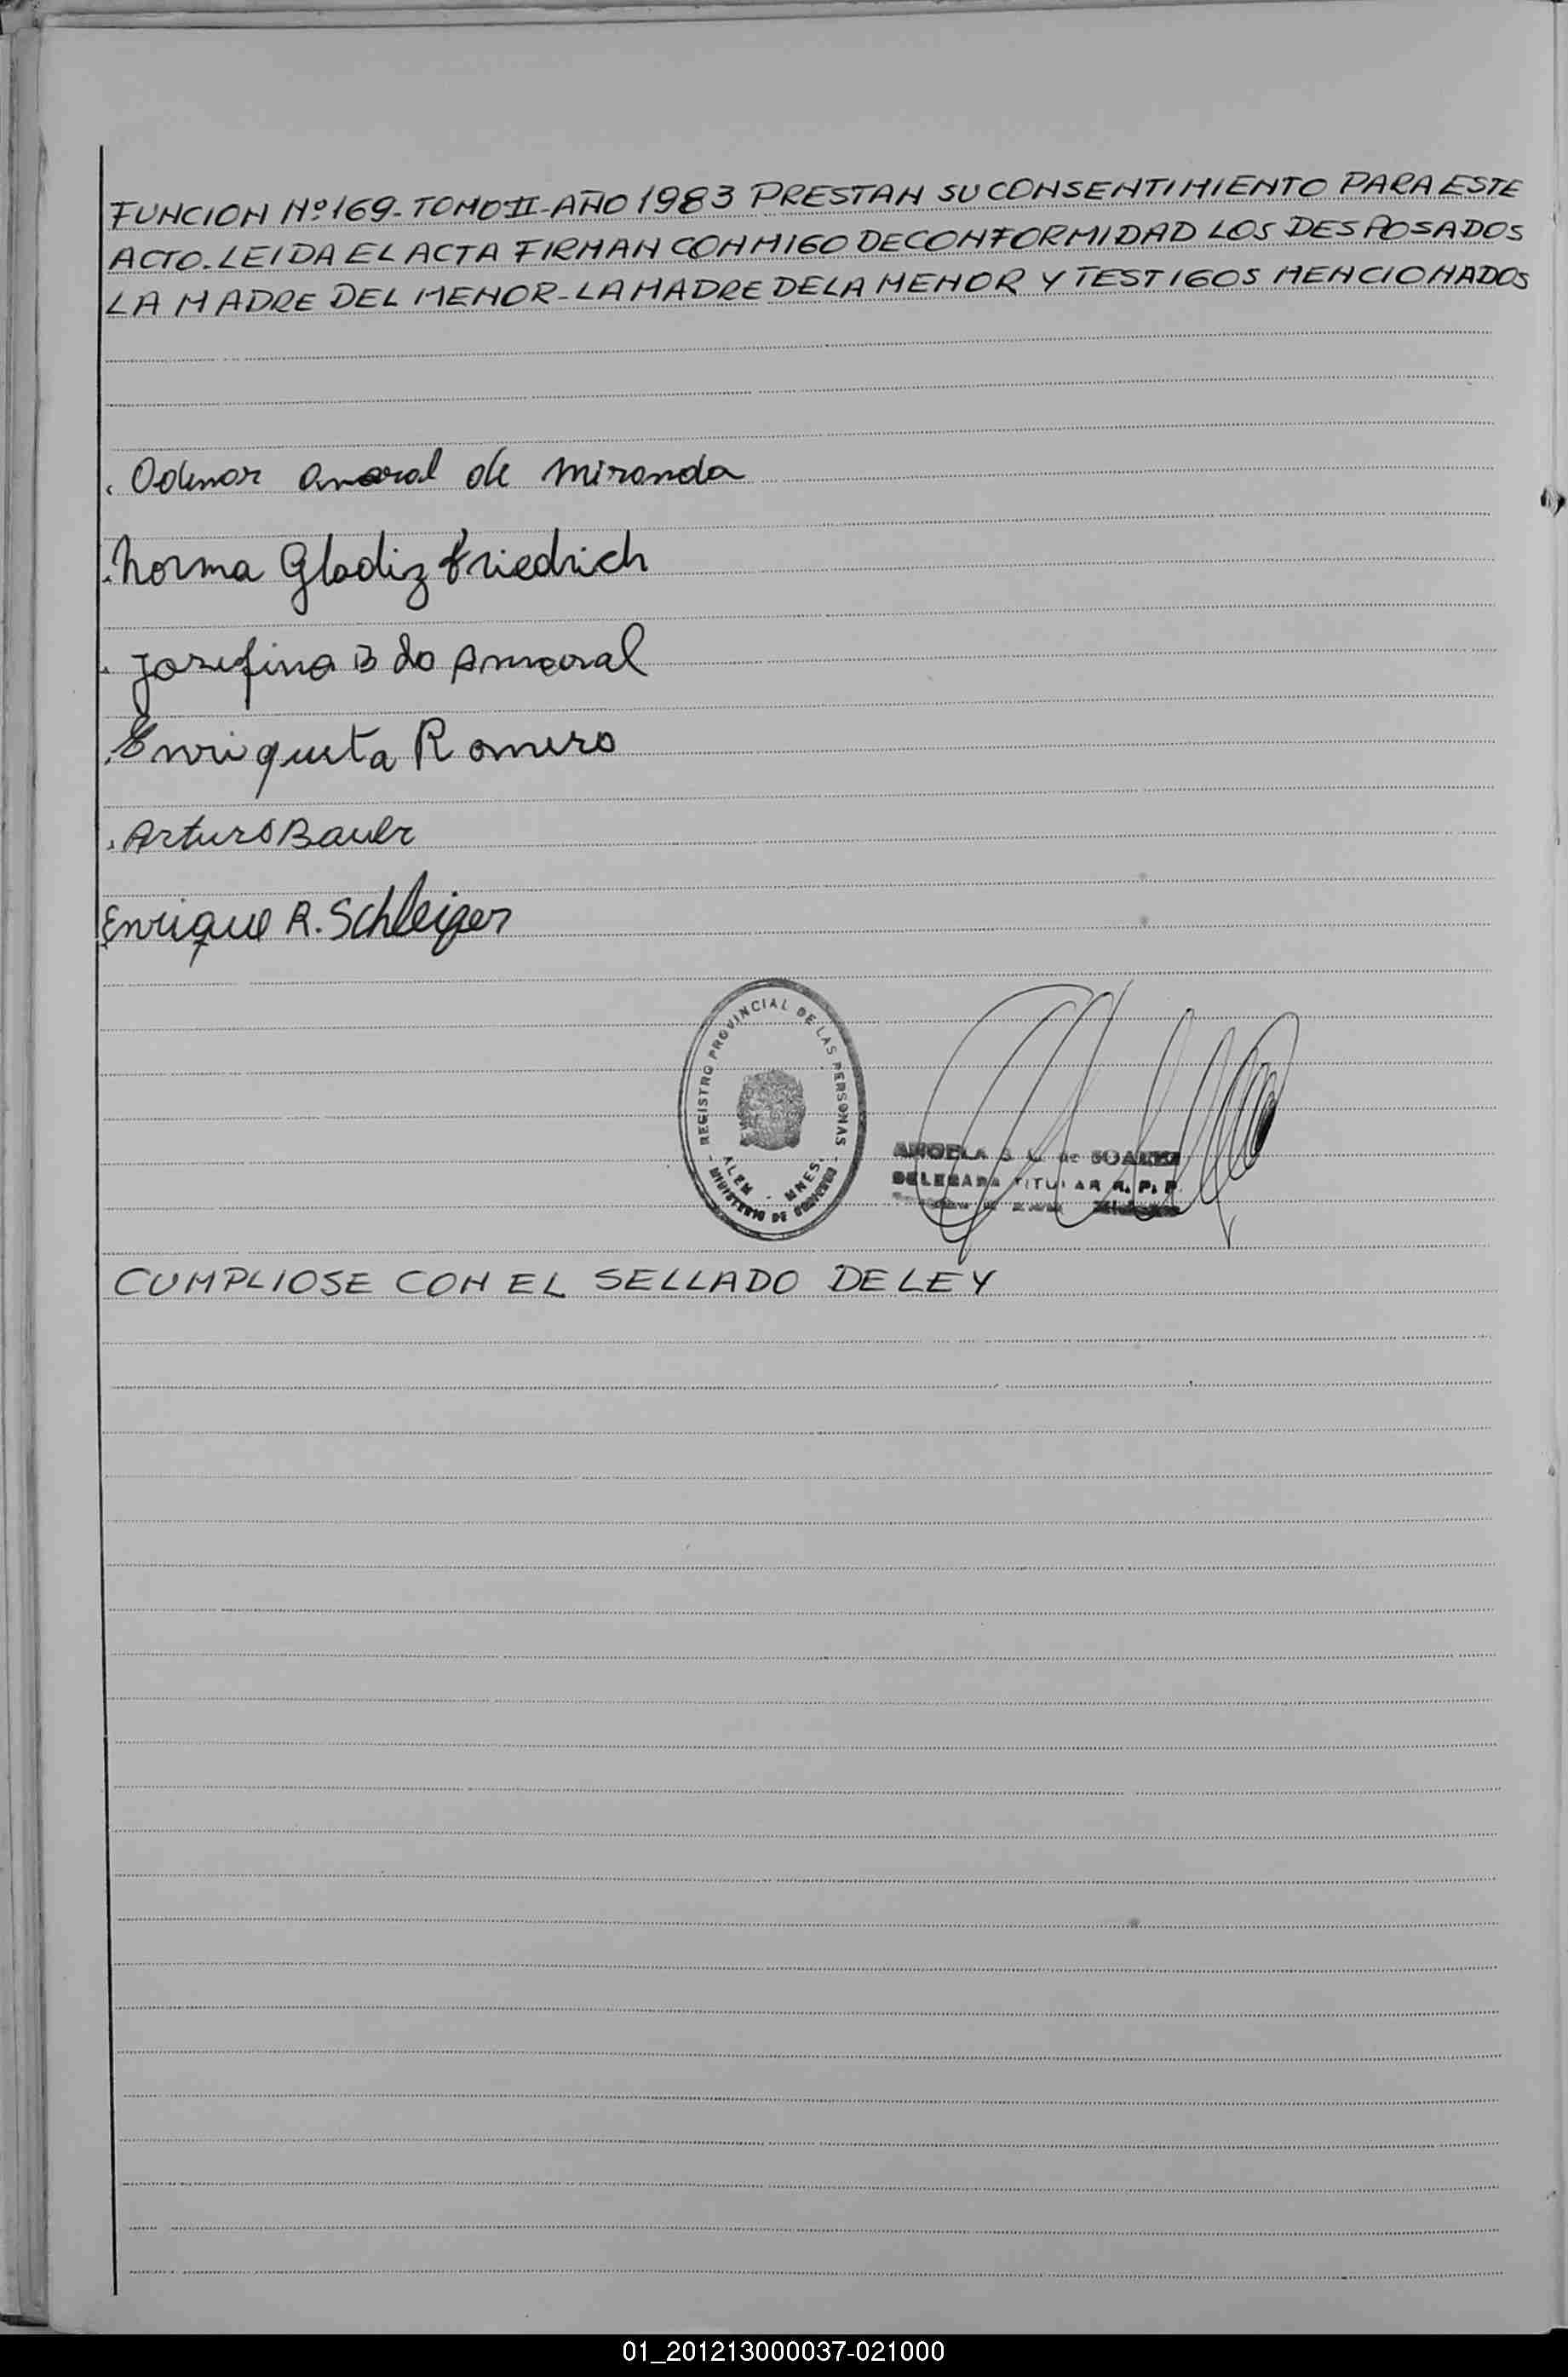 FUNCION Nº 169-TOMO II-AÑO 1983 PRESTAN SU CONSENTIMIENTO PARA ESTE
ACTO. LEIDA EL ACTA FIRMAN CONMIGO DE CONFORMIDAD LOS DESPOSADOS
LA MADRE DEL MENOR-LA MADRE DE LA MENOR Y TESTIGOS MENCIONADOS
Odemar Amaral de Miranda
Norma Gladiz Friedrich
Josefina B do Amaral
Enriqueta Romero
Arturo Bauer
Enrique R. Schleiger
- REGISTRO PROVINCIAL DE LAS PERSONAS -
ALEM - MNES.
MINISTERIO DE GOBIERNO
ANGELA de SOAREZ
DELEGADA TITULAR R. P. P.
CUMPLIOSE CON EL SELLADO DE LEY
01_201213000037-021000